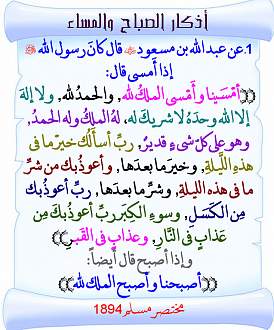 أذكار الصباح والمساء
1.عن عبد الله بن مسعود ﷺ قال كان رسول الله ﷺ
إذا أمسى قال:
((أمْسَينا وأمْسى الملكُ لله, والحمدُ لله, ولا إلهَ
إلا اللهُ وحدَهُ لا شريكَ له, لهُ الملكُ وله الحمدُ,
وهو على كلِّ شيءٍ قديرٌ, ربِّ أسألُكَ خيرَ ما في
هذهِ الليلةِ, وخيرَ ما بعدَها, وأعوذُ بكَ من شرِّ
ما في هذه الليلةِ, وشرِّ ما بعدَها, ربِّ أعوذُ بك
مِن الكَسَلِ, وسوءِ الكِبَرِ ربِّ أعوذُ بكَ مِن
عَذابٍ في النَّارِ, وعذابٍ في القبرِ))
وإذا أصبح قال أيضاً:
((أصبحنا وأصبح الملك لله))
مختصر مسلم 1894